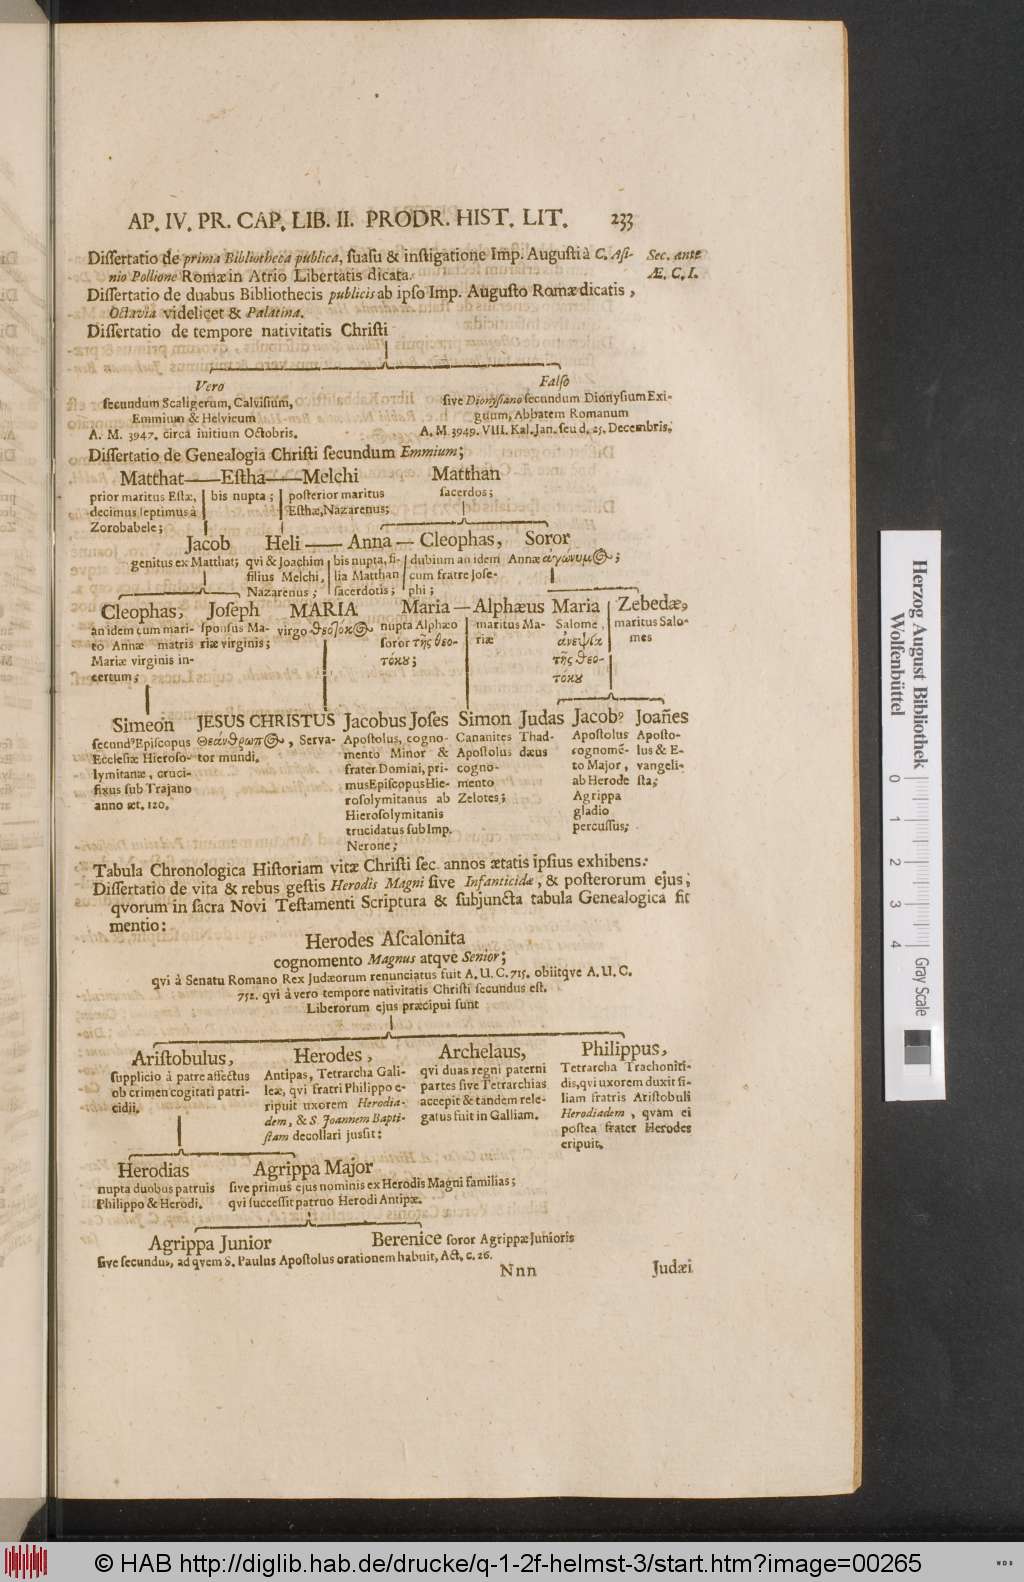 AP. IV. PR. CAP. LIB. II. PRODR. HIST. LIT. 233
Dissertatio de prima Bibliotheca publica, suasu & instigatione Imp. Augusti à C. Asi-
nio Pollione Romæ in Atrio Libertatis dicata.
Sec. ante
Æ. C. I.
Dissertatio de duabus Bibliothecis publicis ab ipso Imp. Augusto Romæ dicatis,
Octavia videlicet & Palatina.
Dissertatio de tempore nativitatis Christi
Vero
secundum Scaligerum, Calvisium,
Emmium & Helvicum
A. M. 3947. circa initium Octobris.
Falso
sive Dionysiano secundum Dionysium Exi-
guum, Abbatem Romanum
A. M. 3949. VIII. Kal. Jan. seu d. 25. Decembris.
Dissertatio de Genealogia Christi secundum Emmium;
Matthat — Estha — Melchi Matthan
prior maritus Estæ,
decimus septimus à
Zorobabele;
bis nupta;
posterior maritus
Esthæ, Nazarenus;
sacerdos;
Jacob Heli — Anna — Cleophas, Soror
genitus ex Matthat;
qvi & Joachim
filius Melchi,
Nazarenus;
bis nupta, fi-
lia Matthan
sacerdotis;
dubium an idem
cum fratre Jose-
phi;
Annæ ἀγώνυμ;
Cleophas, Joseph MARIA Maria — Alphæus Maria Zebedæ9
an idem cum mari-
to Annæ matris
Mariæ virginis in-
certum;
sponsus Ma-
riæ virginis;
virgo θεοτόκ
nupta Alphæo
soror τῆς θεο-
τόκȣ;
maritus Ma-
riæ
Salome,
ἀνεψιὰ
τῆς θεο-
τόκȣ
maritus Salo-
mes
Simeon JESUS CHRISTUS Jacobus Joses Simon Judas Jacob9 Joañes
secund9 Episcopus
Ecclesiæ Hieroso-
lymitanæ, cruci-
fixus sub Trajano
anno æt. 120.
Θεάνθρωπ, Serva-
tor mundi.
Apostolus, cogno-
mento Minor &
frater Domini, pri-
mus Episcopus Hie-
rosolymitanus ab
Hierosolymitanis
trucidatus sub Imp.
Nerone;
Cananites
Apostolus
cogno-
mento
Zelotes;
Thad-
dæus
Apostolus
cognomē-
to Major,
ab Herode
Agrippa
gladio
percussus;
Aposto-
lus & E-
vangeli-
sta;
Tabula Chronologica Historiam vitæ Christi sec. annos ætatis ipsius exhibens.
Dissertatio de vita & rebus gestis Herodis Magni sive Infanticidæ, & posterorum ejus,
qvorum in sacra Novi Testamenti Scriptura & subjuncta tabula Genealogica fit
mentio:
Herodes Ascalonita
cognomento Magnus atqve Senior;
qvi à Senatu Romano Rex Judæorum renunciatus fuit A. U. C. 715. obiitqve A. U. C.
752. qvi à vero tempore nativitatis Christi secundus est.
Liberorum ejus præcipui sunt
Aristobulus,
supplicio à patre affectus
ob crimen cogitati patri-
cidii.
Herodes,
Antipas, Tetrarcha Gali-
leæ, qvi fratri Philippo e-
ripuit uxorem Herodia-
dem, & S. Joannem Bapti-
stam decollari jussit:
Archelaus,
qvi duas regni paterni
partes sive Tetrarchias
accepit & tandem rele-
gatus fuit in Galliam.
Philippus,
Tetrarcha Trachoniti-
dis, qvi uxorem duxit fi-
liam fratris Aristobuli
Herodiadem, qvam ei
postea frater Herodes
eripuit.
Herodias
nupta duobus patruis
Philippo & Herodi.
Agrippa Major
sive primus ejus nominis ex Herodis Magni familias;
qvi successit patruo Herodi Antipæ.
Agrippa Junior
sive secundus, ad qvem S. Paulus Apostolus orationem habuit, Act. c. 26.
Berenice soror Agrippæ Junioris
Nnn Judæi
Herzog August Bibliothek
Wolfenbüttel
0 1 2 3 4
Gray Scale
© HAB http://diglib.hab.de/drucke/q-1-2f-helmst-3/start.htm?image=00265
WDB